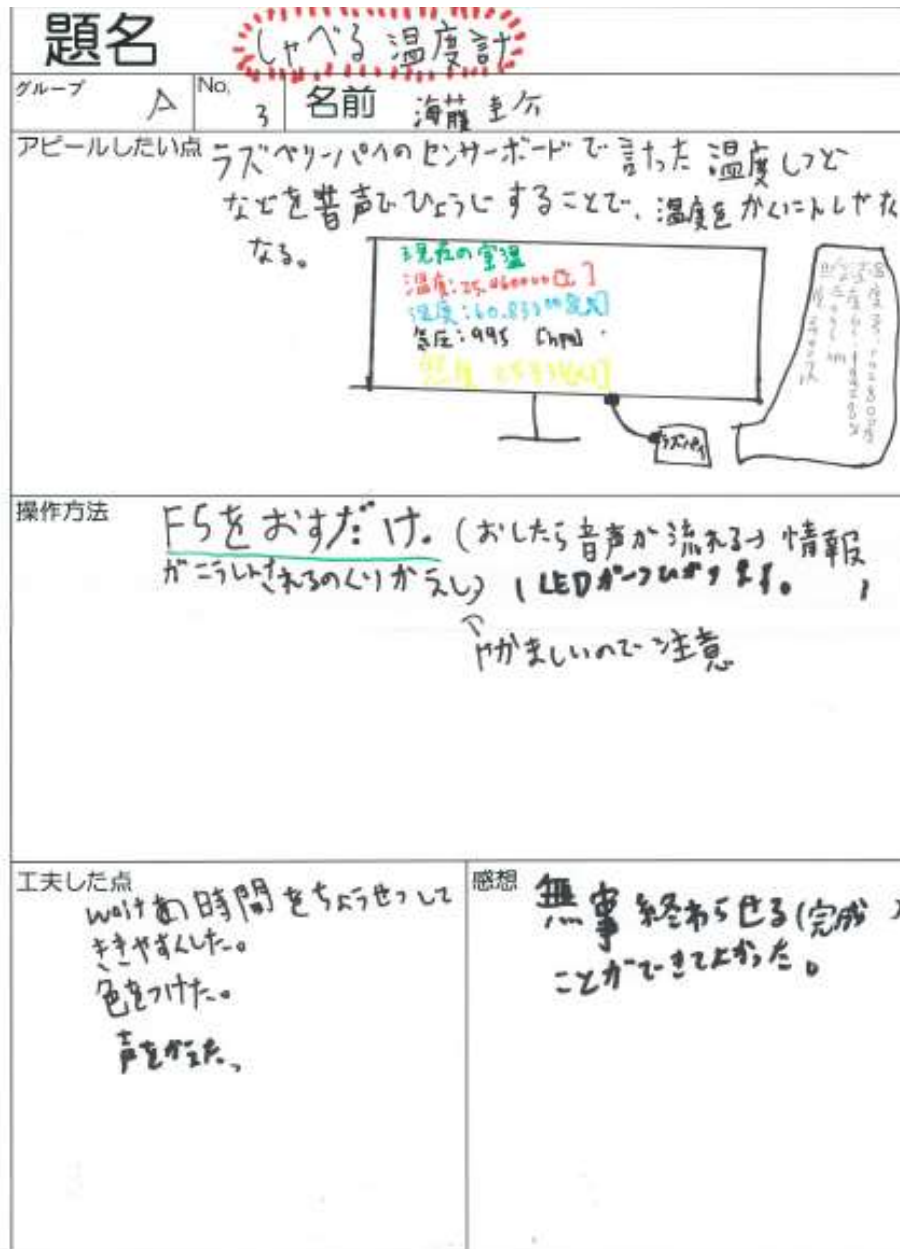 題名 しゃべる温度計
グループ A No. 3 名前 海藤圭介
アピールしたい点 ラズベリーパイのセンサーボードで計った温度しつど
などを音声でひょうじすることで、温度をかくにんしやすく
なる。
現在の室温
温度:25.460000[℃]
湿度:60.833
気圧:995 [hpa]
照度
ラズパイ
操作方法 F5をおすだけ。(おしたら音声が流れる→情報
がこうしんされるのくりかえし) (LEDがつひかります。)
↑
やかましいので注意
工夫した点
waitの時間をちょうせつして
ききやすくした。
色をつけた。
声をかえた。
感想 無事終わらせる(完成)
ことができてよかった。